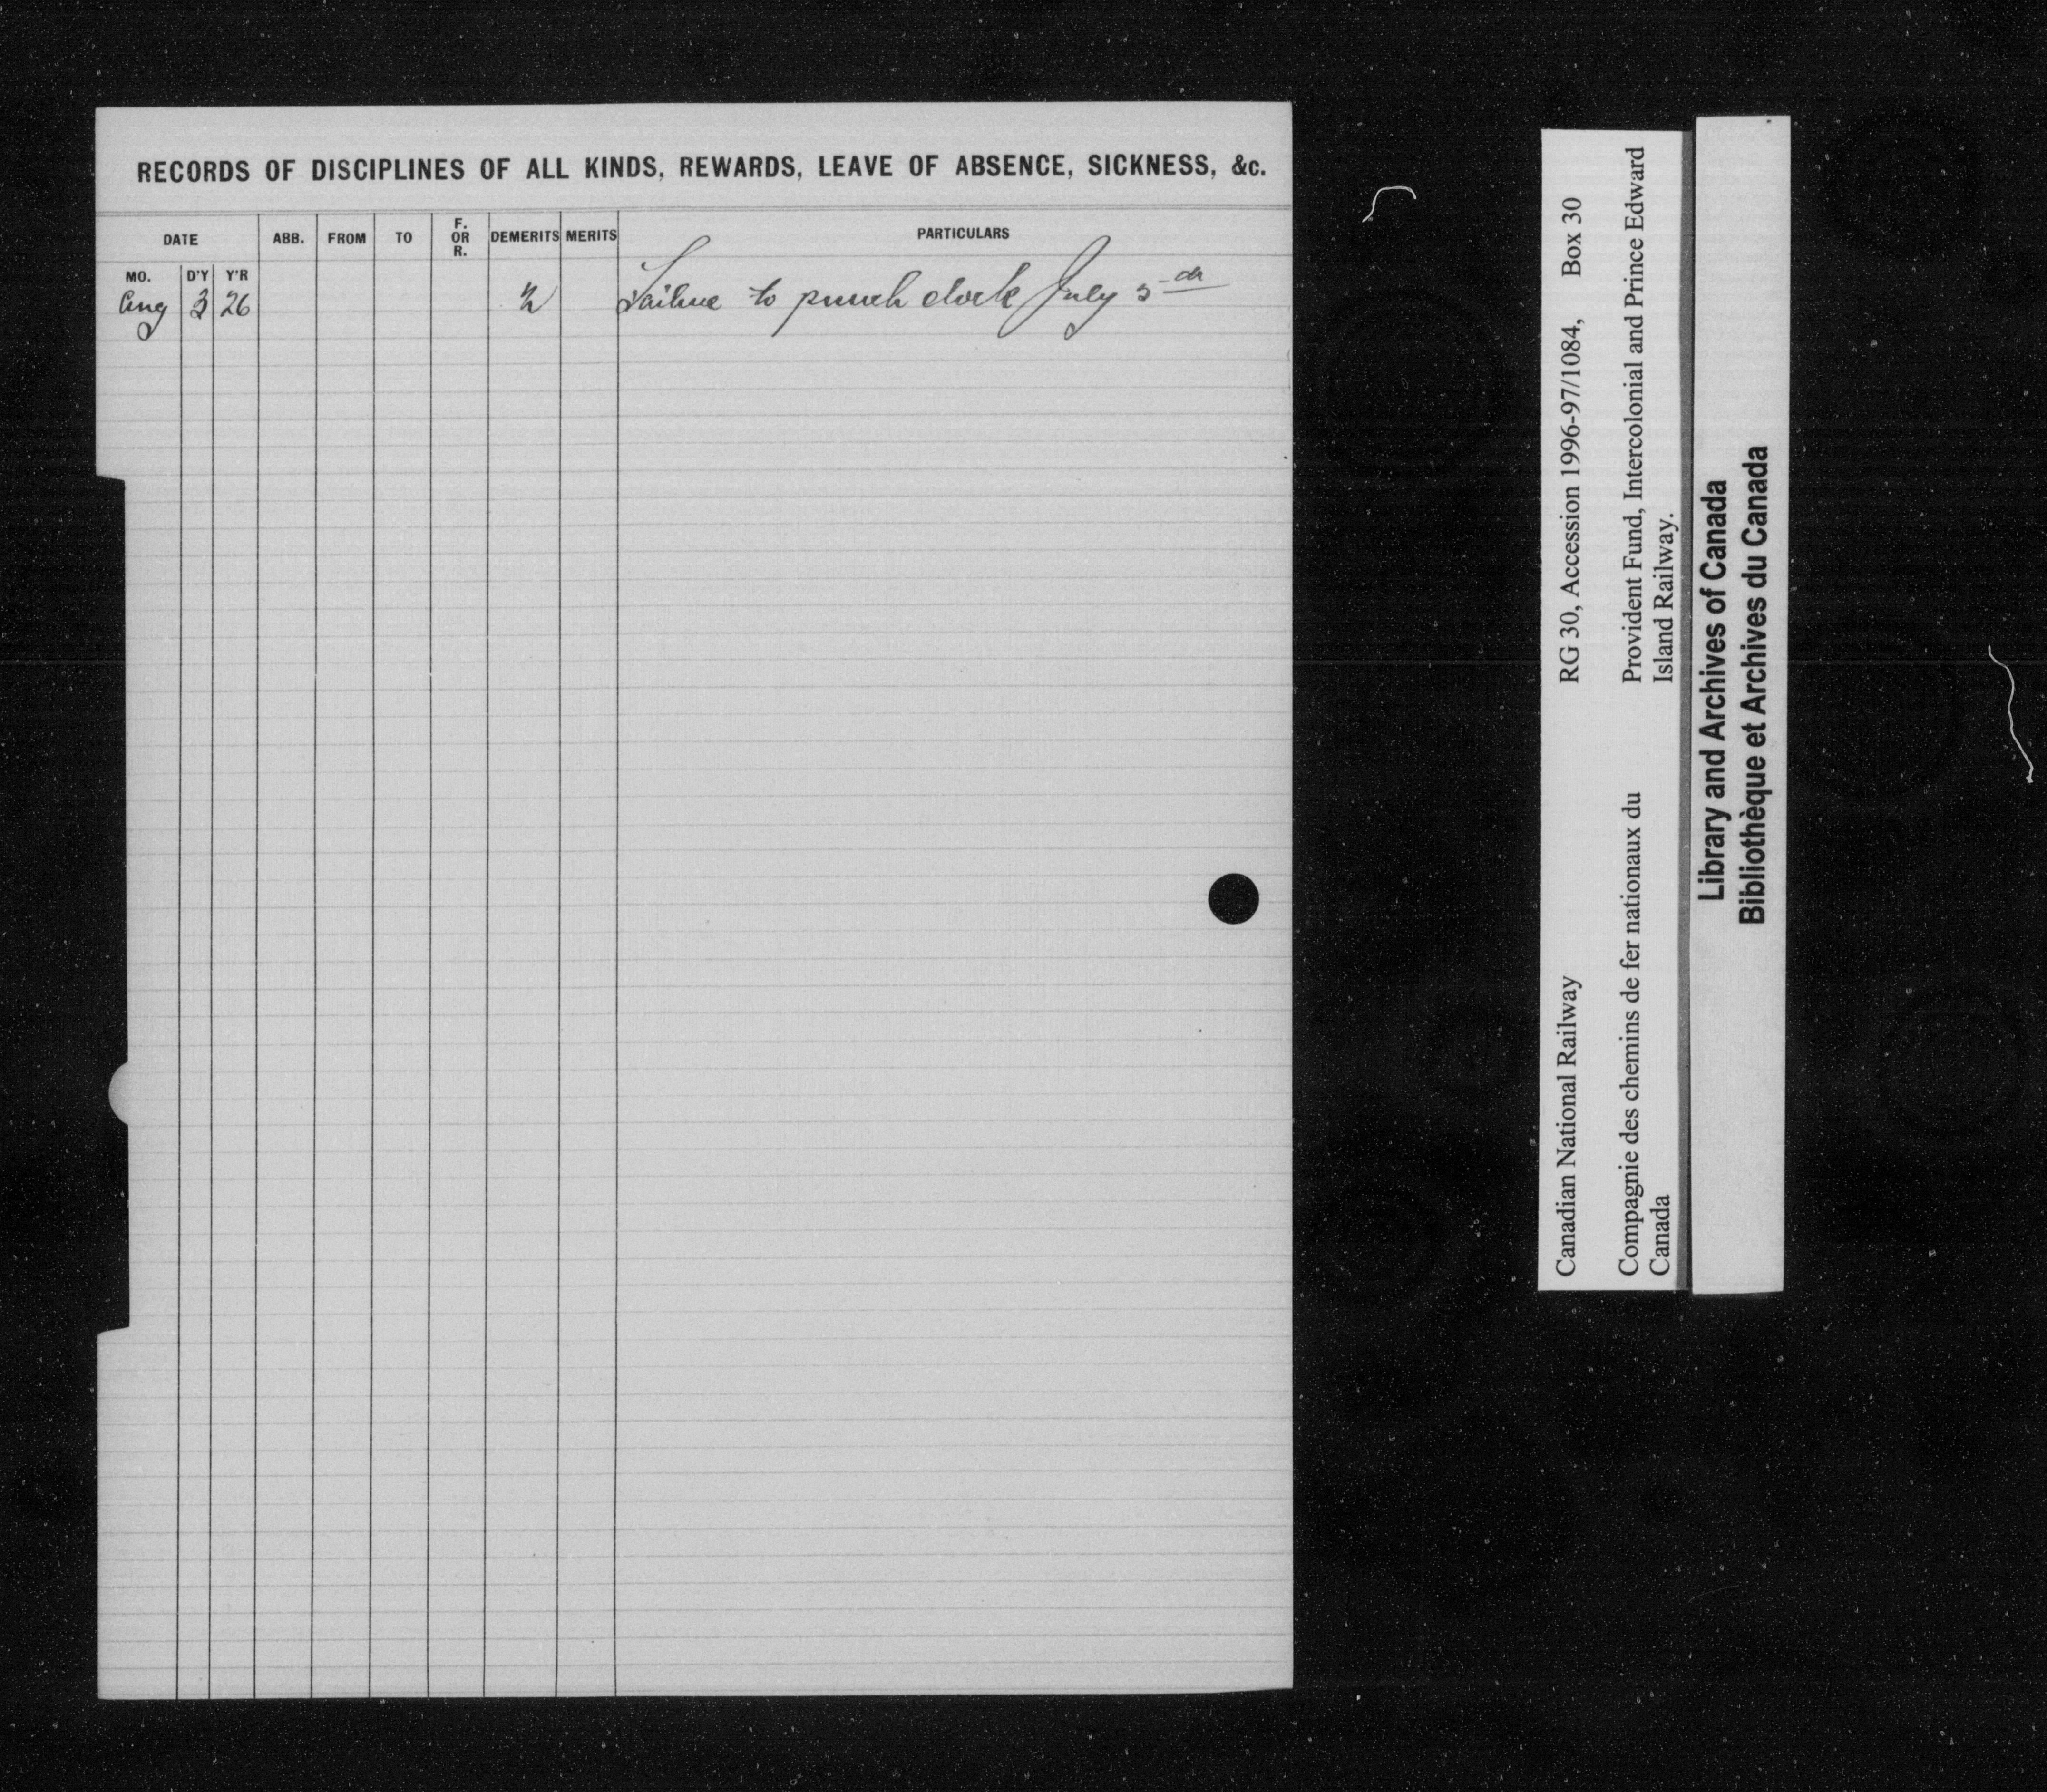 RECORDS OF DISCIPLINES OF ALL KINDS, REWARDS, LEAVE OF ABSENCE, SICKNESS, &c.
DATE ABB. FROM TO F. OR R. DEMERITS MERITS PARTICULARS
MO. D'Y Y'R
Aug 3 26 ½ Failure to punch clock July 5th
RG 30, Accession 1996-97/1084, Box 30
Provident Fund, Intercolonial and Prince Edward
Island Railway.
Canadian National Railway
Compagnie des chemins de fer nationaux du
Canada
Library and Archives of Canada
Bibliothèque et Archives du Canada